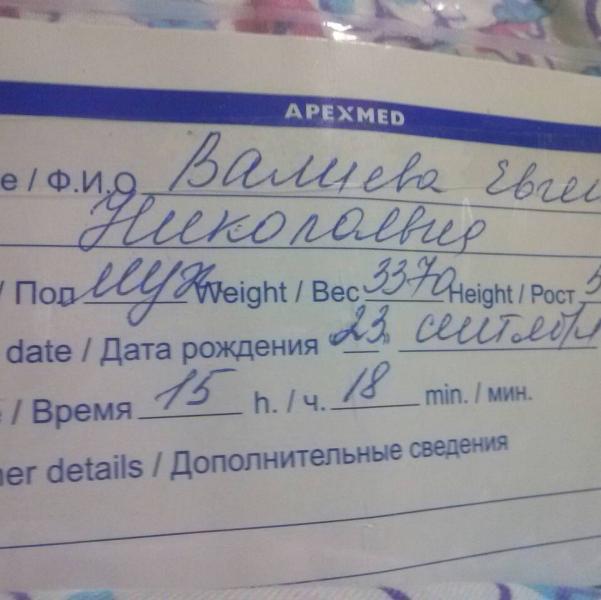 APEXMED
e / Ф.И.О Валиева Евген
Николаевна
/ Пол муж Weight / Вес 3370 Height / Рост 5
date / Дата рождения "23" сентября
/ Время 15 h. / ч. 18 min. / мин.
ner details / Дополнительные сведения